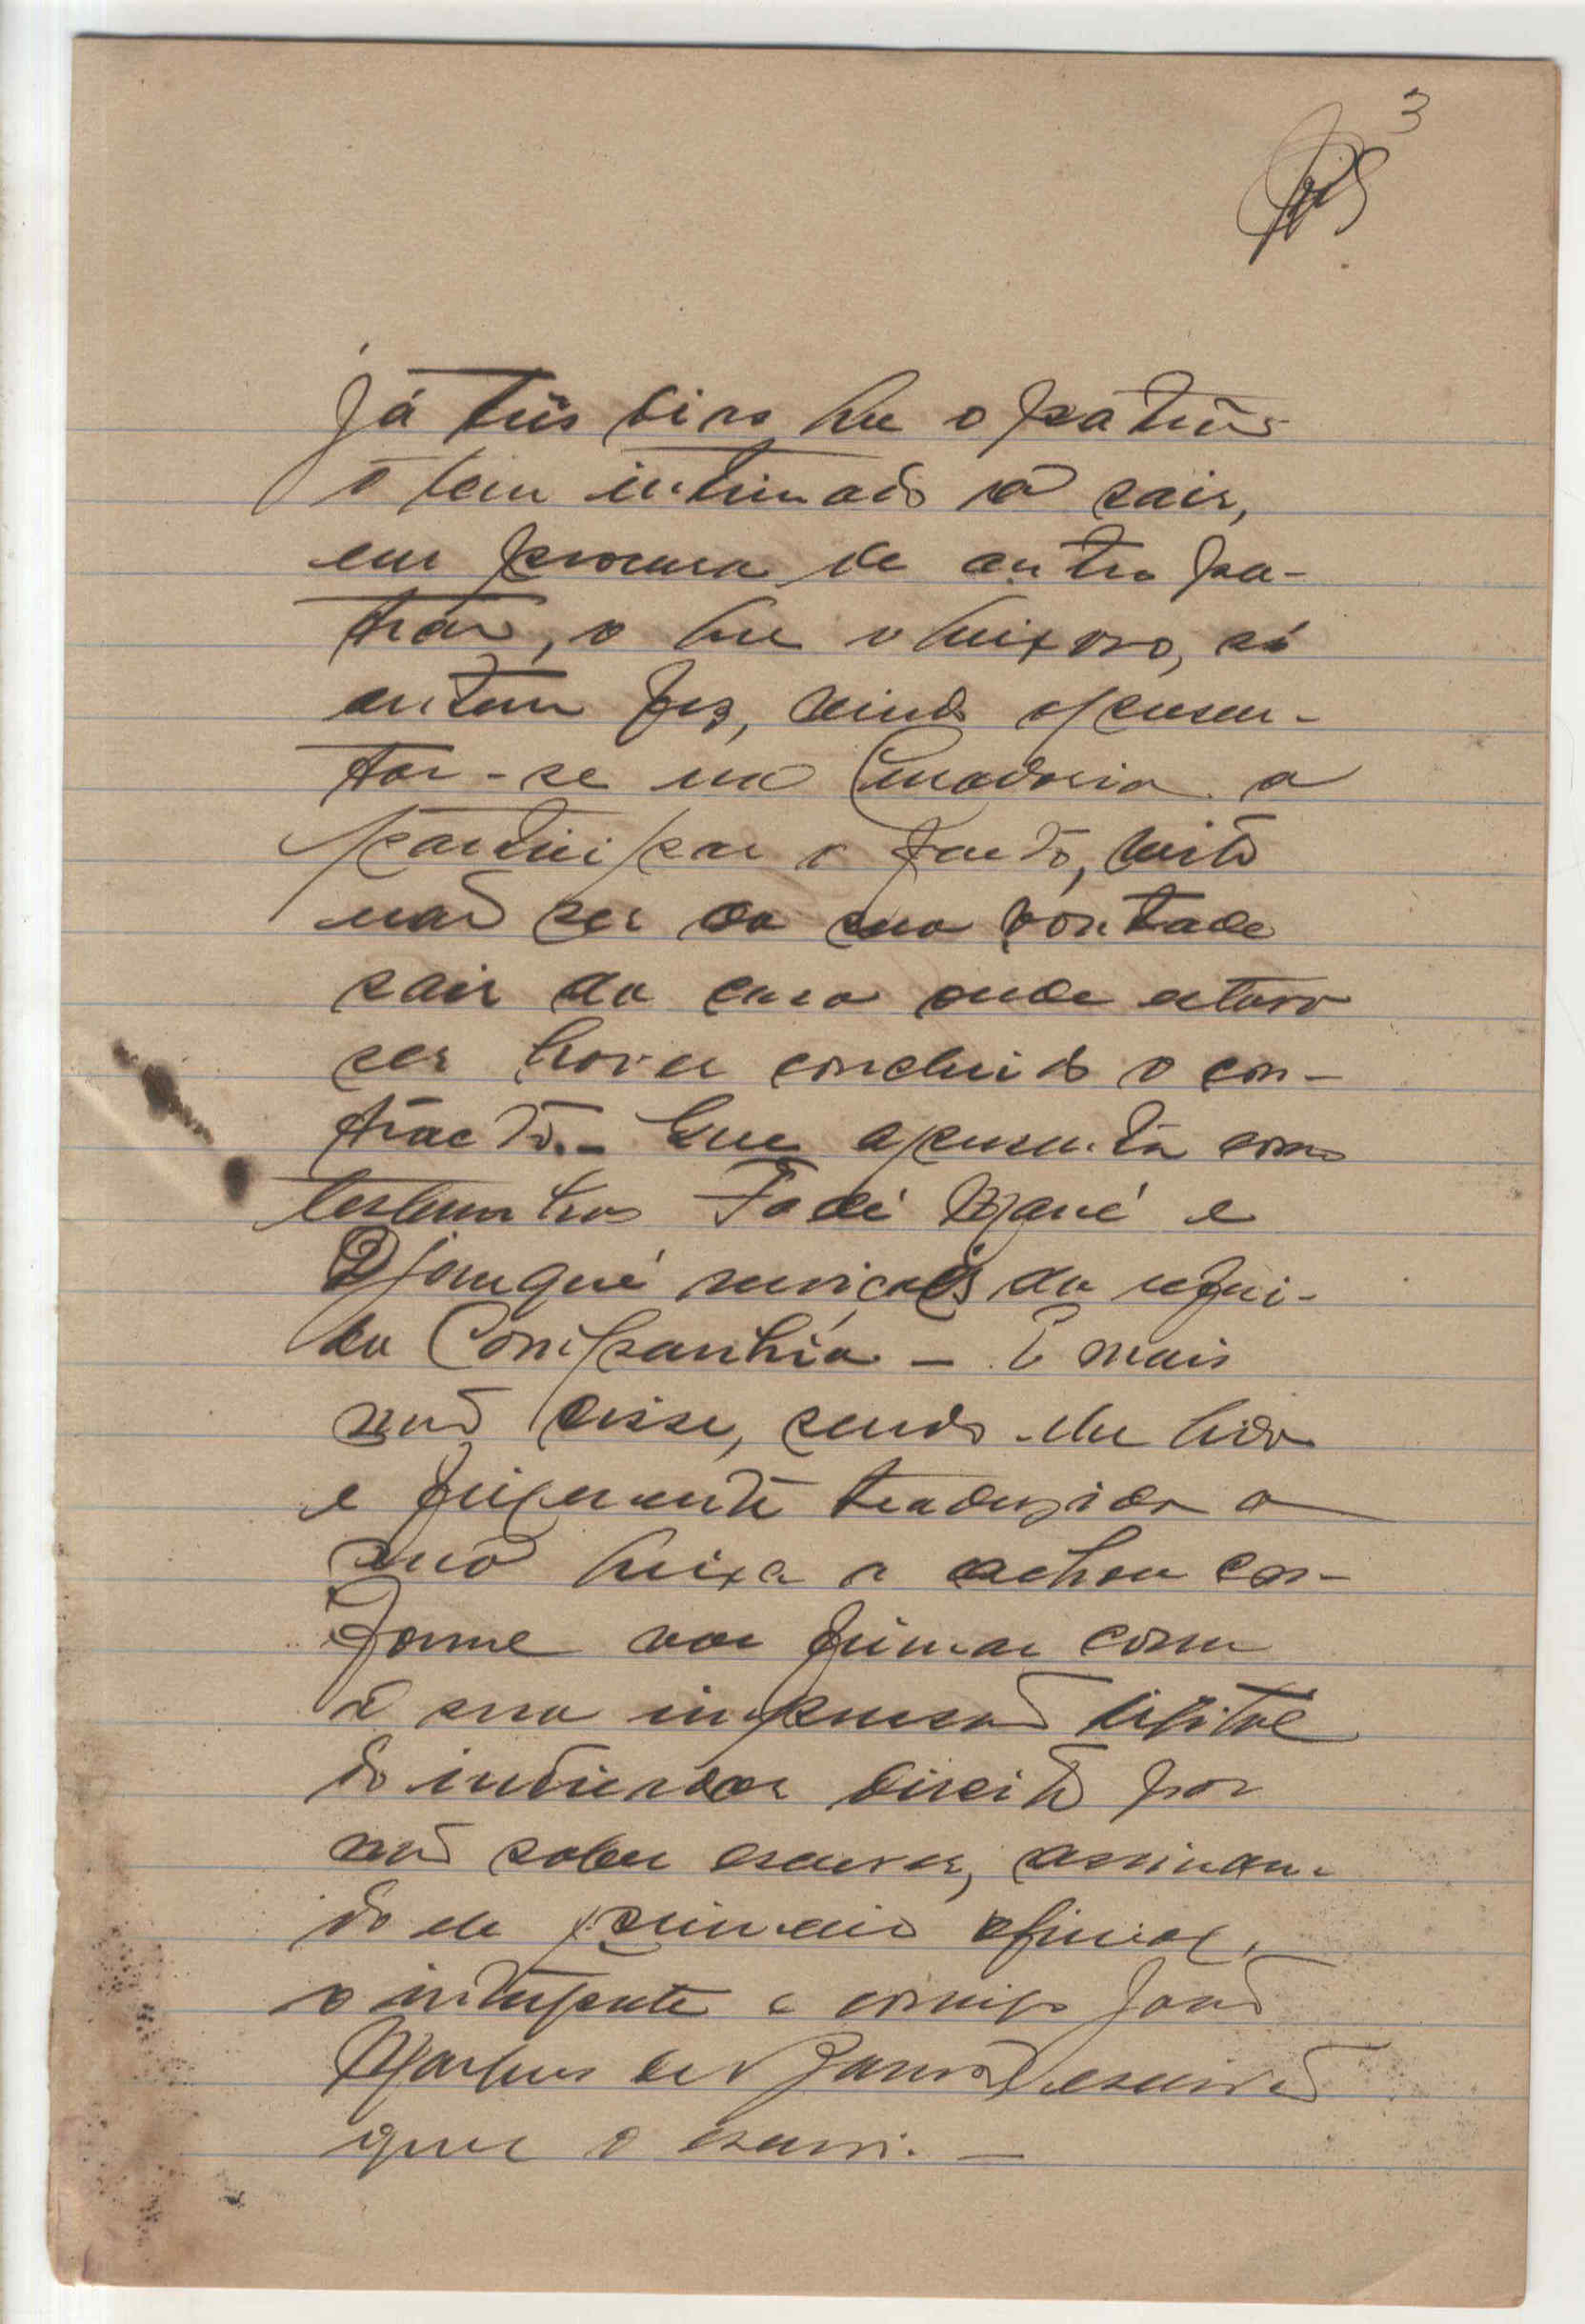 3
já tres dias que o patrão
o tem intimado a sair,
em procura de outro pa-
trão, o que o queixoso, só
ontem fez, vindo apresen-
tar-se na Curadoria a
participar o facto, visto
não ser da sua vontade
sair da casa onde estava
sem haver concluido o con-
tracto. - Que apresenta como
testemunhas Fodé Mané e
Djonqué serviçaes da referi-
da Companhia - E mais
não disse, sendo-lhe lida
e fielmente traduzida a
sua queixa a achou con-
forme vae firmar com
a sua impressão digital
do indicador direito por
não saber escrever, assinan-
do de primeiro oficial,
o interprete e comigo João
Marques de Barros escrivão
que o escrevi. -